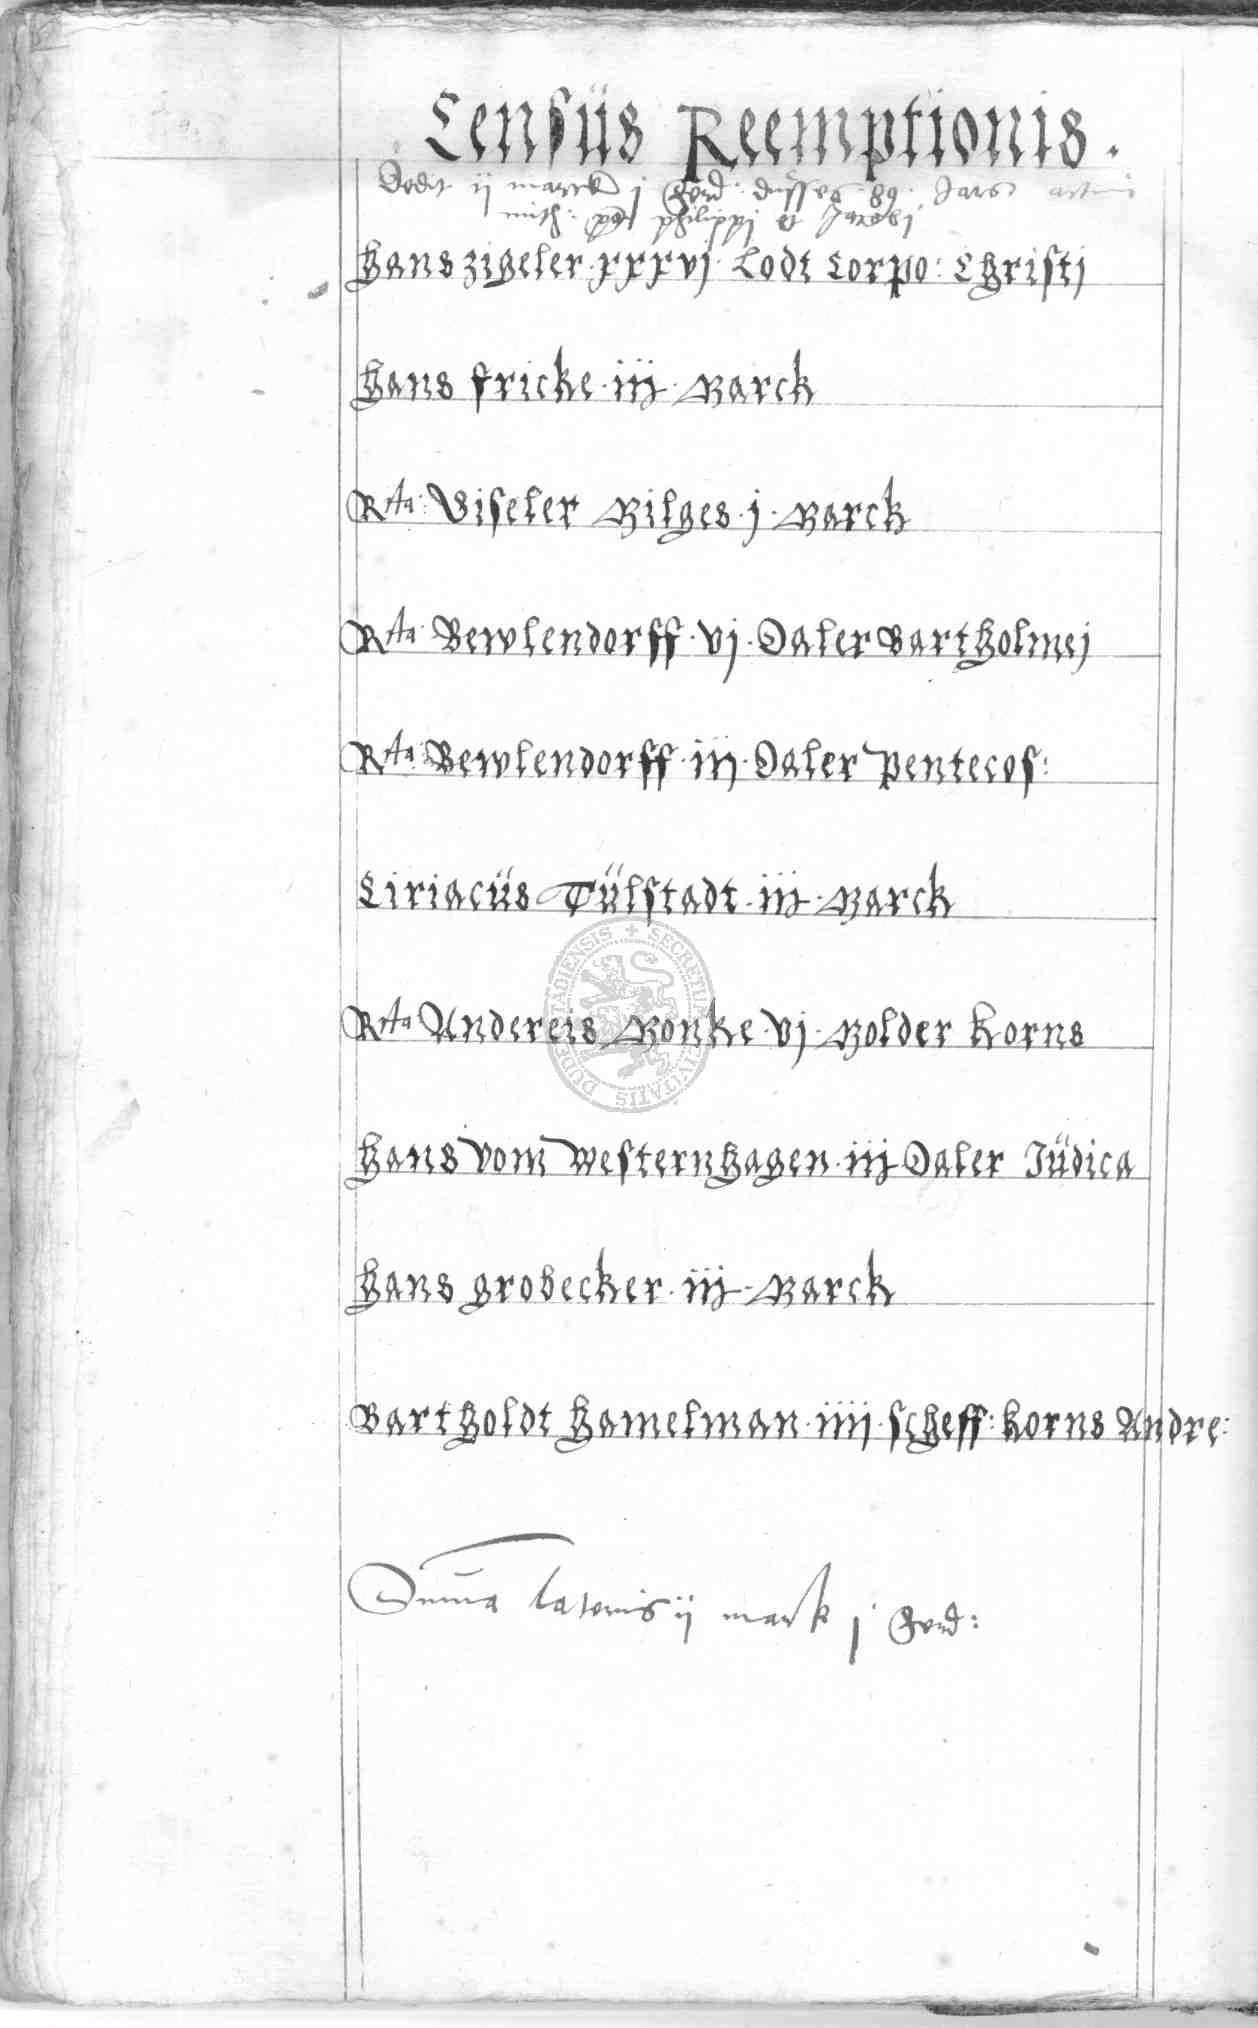 Censüs Reemptionis.
Dedit ij marck j ferd: dusses 89 Jars
mith: post philippi et Jacobi
Hans zigeler · xxxvj · Lodt Corpo: Christj
Hans fricke · iij · Marck
Rta: Viseler Milges · j · Marck
Rta: Bewlendorff · vj · Daler Bartholmej
Rta: Bewlendorff · iij · Daler Pentecos:
Ciriacüs Tülstadt · iij · Marck
Rta Andereis Monke · vj · Molder Korns
Hans vom Westernhagen · iij · Daler Jüdica
Hans grobecker · iij · Marck
Bartholdt Hamelman · iiij · scheff: Korns Andre:
Suma lateris ij mark j ferd:
SECRETUM CIVITATIS DUDERSTADIENSIS